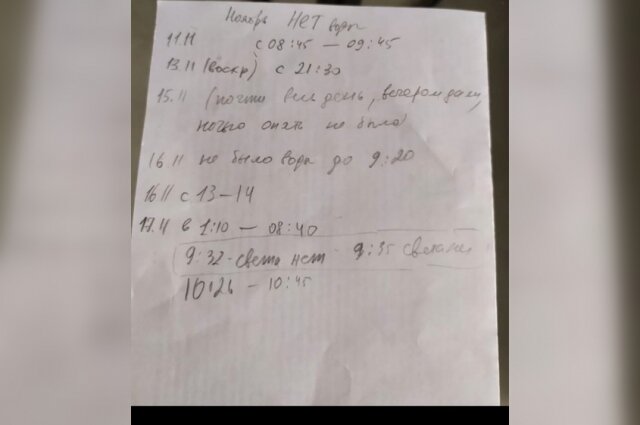 Ноябрь НЕТ воды
11.11 с 08:45 — 09:45
13.11 (воскр) с 21:30
15.11 (почти весь день, вечером дали,
ночью опять не было)
16 11 не было воды до 9:20
16 11 с 13-14
17.11 в 1:10 — 08:40
9:32-света нет - 9:35
10:26 - 10:45